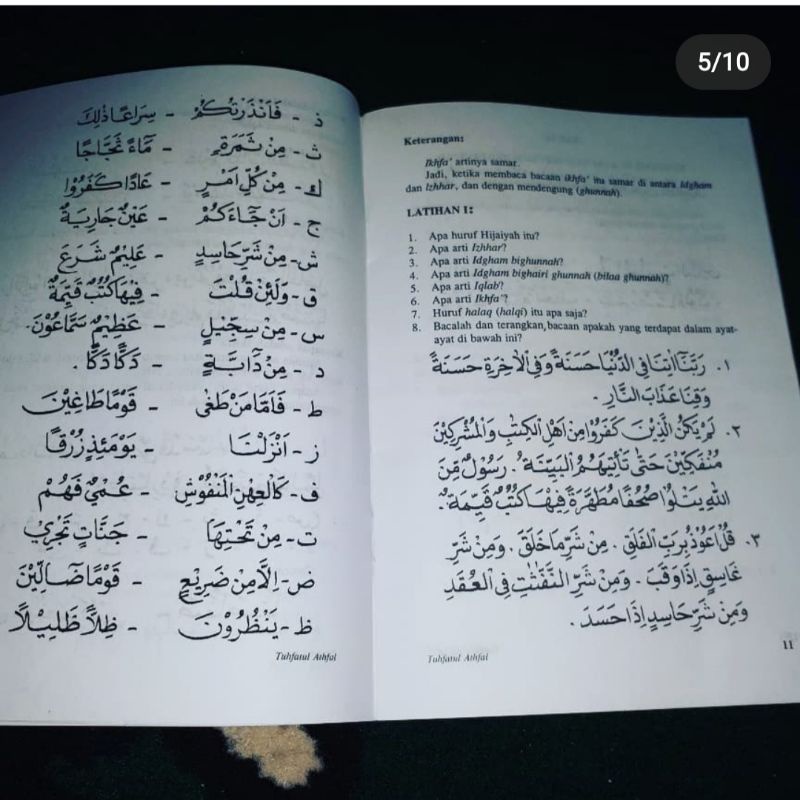 5/10
ذ - فَاَنْذَرْتُكُمْ - سِرَاعًا ذٰلِكَ
ث - مِنْ ثَمَرَةٍ - مَآءً ثَجَّاجًا
ك - مِنْ كُلِّ اَمْرٍ - عَادًا كَفَرُوْا
ج - اَنْ جَآءَكُمْ - عَيْنٌ جَارِيَةٌ
ش - مِنْ شَرِّ حَاسِدٍ - عَلِيْمٌ شَرَعَ
ق - وَلَئِنْ قُلْتَ - فِيْهَا كُتُبٌ قَيِّمَةٌ
س - مِنْ سِجِّيْلٍ - عَظِيْمٌ سَمَّاعُوْنَ.
د - مِنْ دَآبَّةٍ - دَكًّا دَكًّا.
ط - فَاَمَّا مَنْ طَغٰى - قَوْمًا طَاغِيْنَ
ز - اَنْزَلْنَا - يَوْمَئِذٍ زُرْقًا
ف - كَالْعِهْنِ الْمَنْفُوْشِ - عُمْيٌ فَهُمْ
ت - مِنْ تَحْتِهَا - جَنَّاتٍ تَجْرِيْ
ض - اِلَّا مِنْ ضَرِيْعٍ - قَوْمًا ضَآلِّيْنَ
ظ - يَنْظُرُوْنَ - ظِلًّا ظَلِيْلًا
Tuhfatul Athfal
Keterangan:
Ikhfa' artinya samar.
Jadi, ketika membaca bacaan ikhfa' itu samar di antara Idgham
dan Izhhar, dan dengan mendengung (ghunnah).
LATIHAN I:
1. Apa huruf Hijaiyah itu?
2. Apa arti Izhhar?
3. Apa arti Idgham bighunnah?
4. Apa arti Idgham bighairi ghunnah (bilaa ghunnah)?
5. Apa arti Iqlab?
6. Apa arti Ikhfa'?
7. Huruf halaq (halqi) itu apa saja?
8. Bacalah dan terangkan, bacaan apakah yang terdapat dalam ayat-
ayat di bawah ini?
١. رَبَّنَآ اٰتِنَا فِى الدُّنْيَا حَسَنَةً وَّفِى الْاٰخِرَةِ حَسَنَةً
وَّقِنَا عَذَابَ النَّارِ.
٢. لَمْ يَكُنِ الَّذِيْنَ كَفَرُوْا مِنْ اَهْلِ الْكِتٰبِ وَالْمُشْرِكِيْنَ
مُنْفَكِّيْنَ حَتّٰى تَأْتِيَهُمُ الْبَيِّنَةُ. رَسُوْلٌ مِّنَ
اللّٰهِ يَتْلُوْا صُحُفًا مُّطَهَّرَةً فِيْهَا كُتُبٌ قَيِّمَةٌ.
٣. قُلْ اَعُوْذُ بِرَبِّ الْفَلَقِ. مِنْ شَرِّ مَا خَلَقَ. وَمِنْ شَرِّ
غَاسِقٍ اِذَا وَقَبَ. وَمِنْ شَرِّ النَّفّٰثٰتِ فِى الْعُقَدِ
وَمِنْ شَرِّ حَاسِدٍ اِذَا حَسَدَ.
Tuhfatul Athfal
11